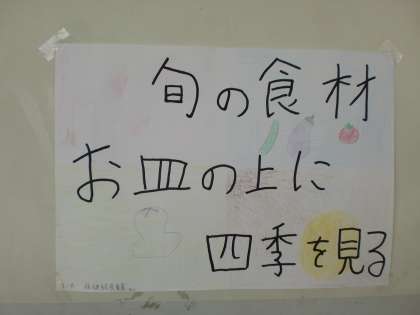 旬の食材
お皿の上に
四季を見る